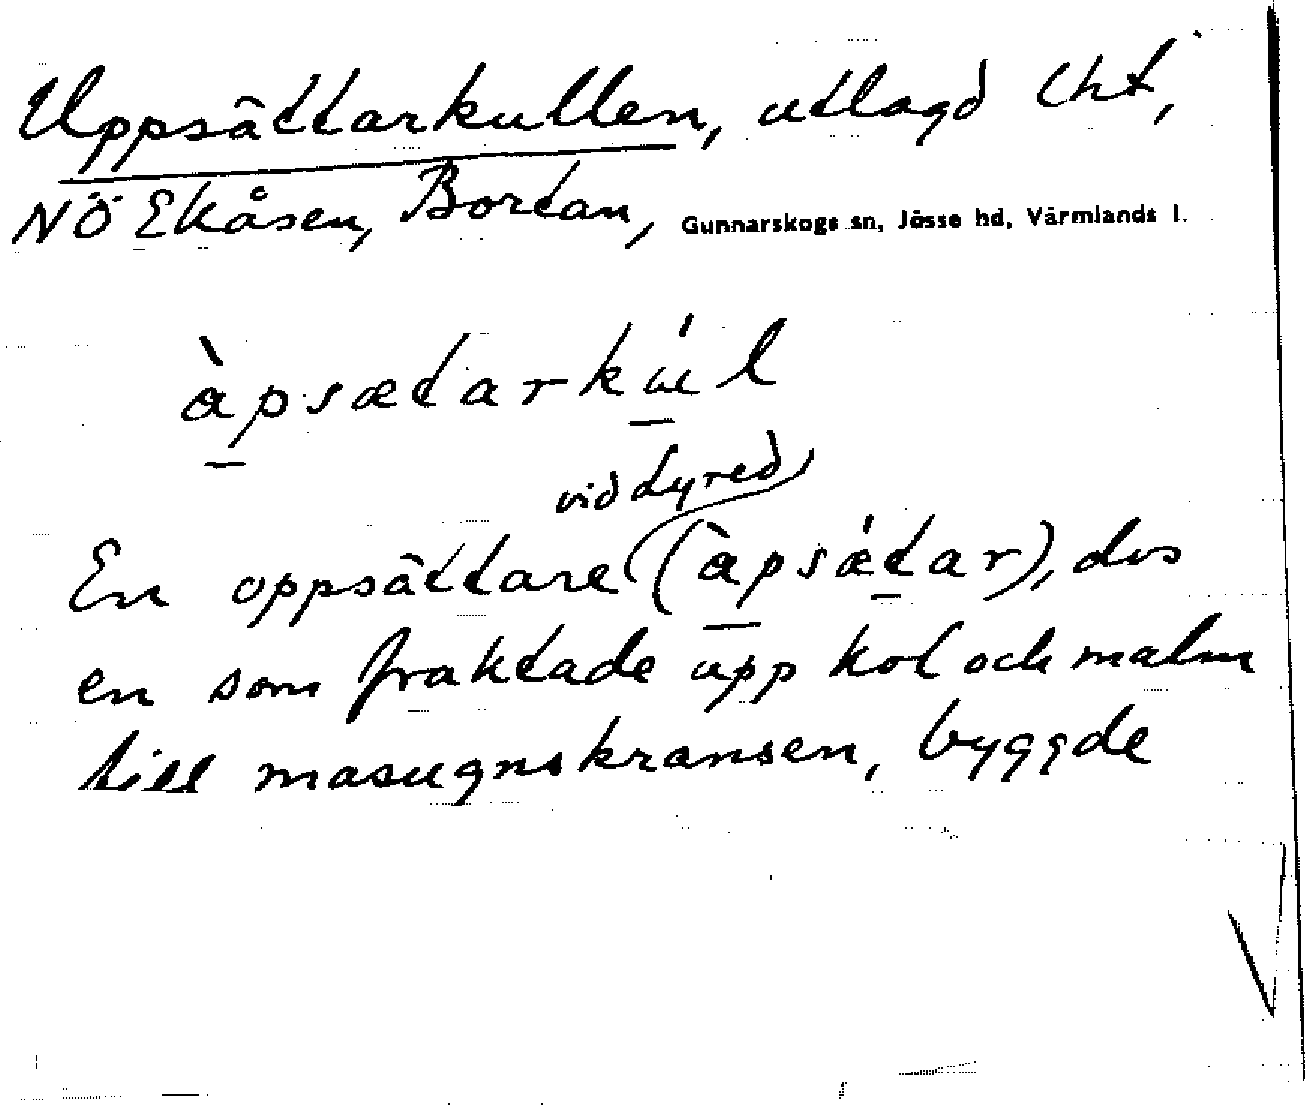 Uppsättarkullen, utlagd lht,
NÖ Ekåsen, Bortan, Gunnarskogs sn, Jösse hd, Värmlands l.
àpsætarkúl
vid Lyred
En oppsättare (àpsǽtar), dvs
en som fraktade upp kol och malm
till masugnskransen, byggde